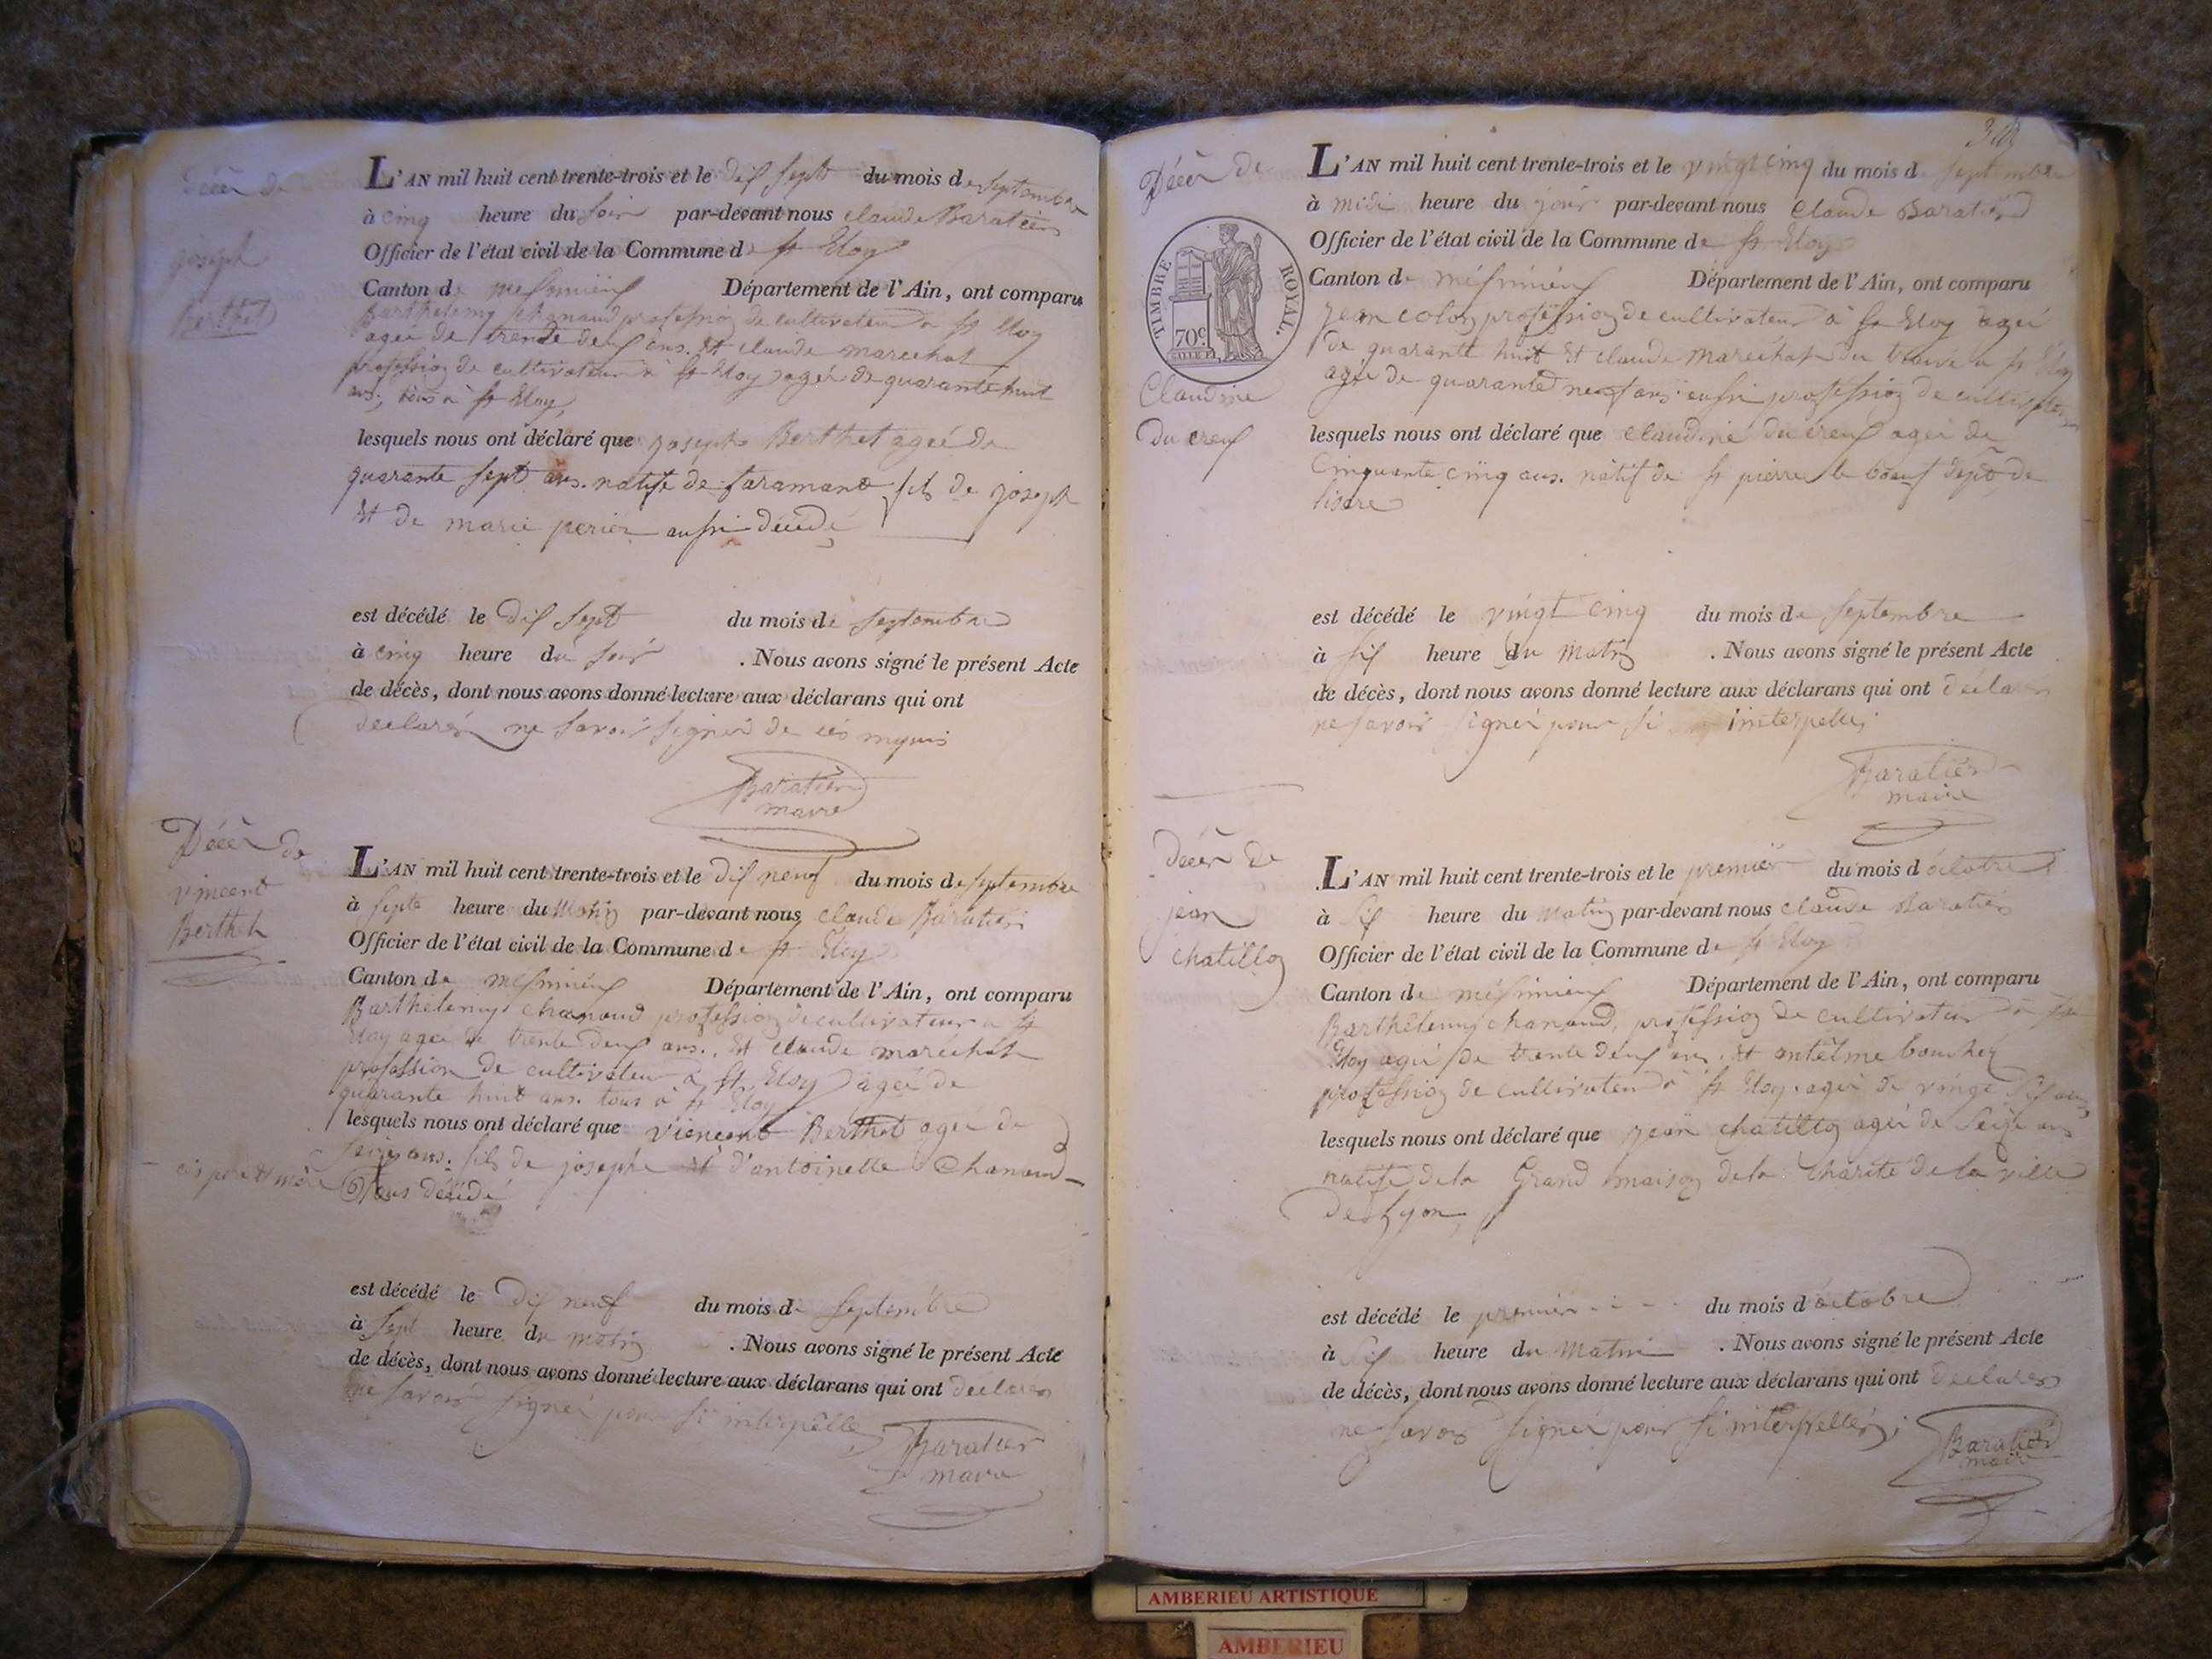 Décès de
joseph
Berthet
L'AN mil huit cent trente-trois et le dix sept du mois de septembre
à cinq heure du soir par-devant nous claude Baratier
Officier de l'état civil de la Commune de st Eloy
Canton de meximieux Département de l'Ain, ont comparu
Barthelemy chanaud profession de cultivateur a st Eloy
ageé de trente deux ans. Et claude marechal
profession de cultivateur à st Eloy ageé de quarante huit
ans, tous à st Eloy,
lesquels nous ont déclaré que joseph Berthet ageé de
quarante sept ans. natife de faramant fils de joseph
Et de marie perier aussi décédé
est décédé le dix sept du mois de septembre
à cinq heure du soir . Nous avons signé le présent Acte
de décès, dont nous avons donné lecture aux déclarans qui ont
declarés ne savoir signer de ces
Baratier
maire
Décès de
vincent
Berthet
L'AN mil huit cent trente-trois et le dix neuf du mois de septembre
à sept heure du matin par-devant nous claude Baratier
Officier de l'état civil de la Commune de st Eloy
Canton de meximieux Département de l'Ain, ont comparu
Barthelemy chanaud profession de cultivateur a st
Eloy ageé de trente deux ans., Et claude maréchal
profession de cultivateur à st Eloy ageé de
quarante huit ans. tous à st Eloy
lesquels nous ont déclaré que viencent Berthet ageé de
seize ans. fils de josephe et d'antoinette Chanaud
père et mère tous décédé
est décédé le dix neuf du mois de septembre
à sept heure du matin . Nous avons signé le présent Acte
de décès, dont nous avons donné lecture aux déclarans qui ont declarés
ne savoir signer pour si interpellé
Baratier
maire
Décès de
TIMBRE ROYAL
70c
Claudine
Du creux
L'AN mil huit cent trente-trois et le vingt cinq du mois de septembre
à midi heure du jour par-devant nous claude Baratier
Officier de l'état civil de la Commune de st Eloy
Canton de méximieux Département de l'Ain, ont comparu
jean colon profession de cultivateur à st Eloy ageé
de quarante huit Et claude marechal a st Eloy
ageé de quarante neuf ans aussi profession de cultivateur
lesquels nous ont déclaré que claudine du creux ageé de
Cinquante cinq ans. natif de st pierre le boeuf dept de
lisere
est décédé le vingt cinq du mois de septembre
à six heure du matin . Nous avons signé le présent Acte
de décès, dont nous avons donné lecture aux déclarans qui ont declarés
ne savoir signer pour si interpellé
Baratier
maire
décès de
jean
chatillon
L'AN mil huit cent trente-trois et le premier du mois d octobre
à six heure du matin par-devant nous claude Baratier
Officier de l'état civil de la Commune de st Eloy
Canton de méximieux Département de l'Ain, ont comparu
Barthélemy chanaud, profession de cultivateur à st
Eloy ageé de trente deux ans. Et antelme boucher
profession de cultivateur à st Eloy. ageé de vingt six ans
lesquels nous ont déclaré que jean chatillon ageé de seize ans
natife de la Grand maison de la charite de la ville
de Lyon
est décédé le premier du mois d octobre
à six heure du matin . Nous avons signé le présent Acte
de décès, dont nous avons donné lecture aux déclarans qui ont declarés
ne savoir signer pour si interpellé;
Baratier
maire
AMBERIEU ARTISTIQUE
AMBERIEU